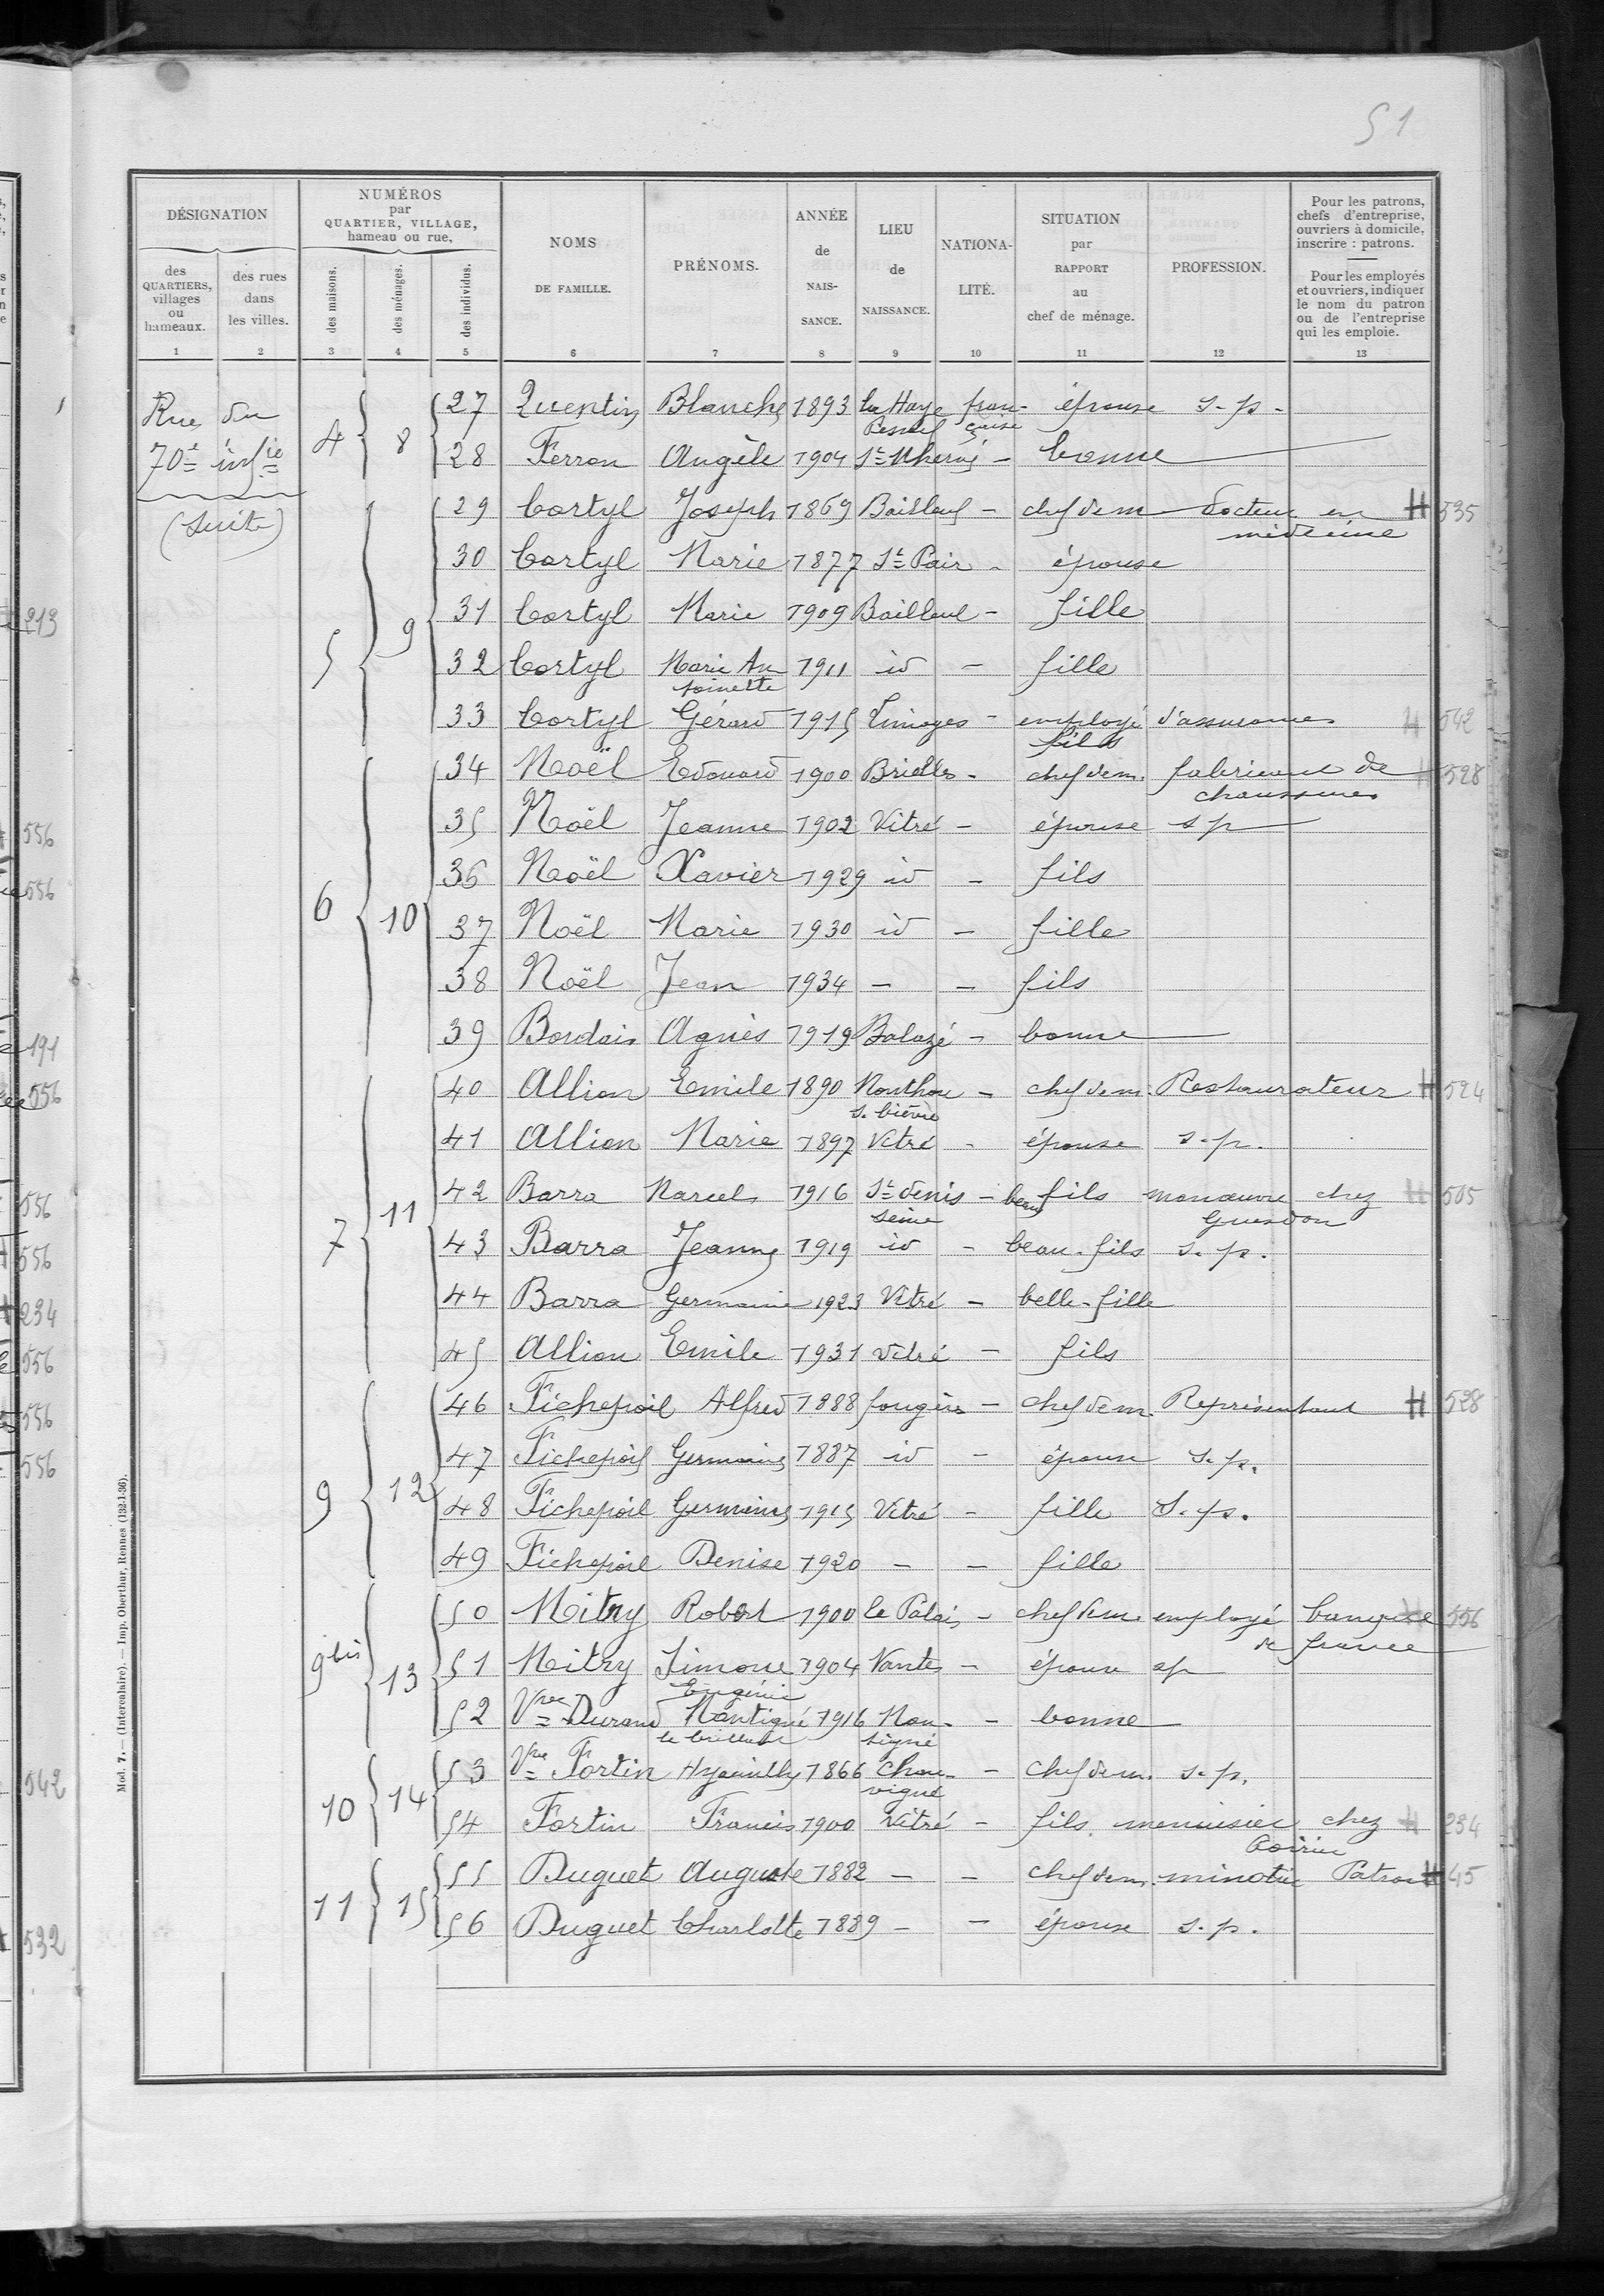 51
DÉSIGNATION
NUMÉROS
par
QUARTIER, VILLAGE,
hameau ou rue,
des
QUARTIERS,
villages
ou
hameaux.
des rues
dans
les villes.
des maisons.
des ménages.
des individus.
NOMS
DE FAMILLE.
PRÉNOMS.
ANNÉE
de
NAIS-
SANCE.
LIEU
de
NAISSANCE.
NATIONA-
LITÉ.
SITUATION
par
RAPPORT
au
chef de ménage.
PROFESSION.
Pour les patrons,
chefs d'entreprise,
ouvriers à domicile,
inscrire : patrons.
Pour les employés
et ouvriers, indiquer
le nom du patron
ou de l'entreprise
qui les emploie.
1 2 3 4 5 6 7 8 9 10 11 12 13
Rue du
70e infie
(suite)
4 8 27 Quentin Blanche 1893 la Haye Pesnel française épouse s.p.
28 Ferron Angèle 1904 St Mhervé - bonne
5 9 29 Cortyl Joseph 1869 Bailleul - chef de m docteur en médecine H 535
30 Cortyl Marie 1877 St Pair - épouse
31 Cortyl Marie 1909 Bailleul - fille
32 Cortyl Marie Antoinette 1911 id - fille
33 Cortyl Gérard 1915 Limoges - employé d'assurances fils H 542
6 10 34 Noël Edouard 1900 Brielles - chef de m. fabricant de chaussures H 528
35 Noël Jeanne 1902 Vitré - épouse sp
36 Noël Xavier 1929 id - fils
37 Noël Marie 1930 id - fille
38 Noël Jean 1934 - - fils
39 Bordais Agnès 1919 Balazé - bonne
7 11 40 Allion Emile 1890 Monthou s. bièvre - chef de m. Restaurateur H 524
41 Allion Marie 1897 Vitré - épouse s.p.
42 Barra Marcel 1916 St denis seine - beau fils manœuvre chez Guesdon H 505
43 Barra Jeanne 1919 id - beau-fils s.p.
44 Barra Germaine 1923 Vitré - belle-fille
45 Allion Emile 1931 Vitré - fils
9 12 46 Fichepoil Alfred 1888 fougères - chef de m. Représentant H 528
47 Fichepoil Germaine 1887 id - épouse s.p.
48 Fichepoil Germaine 1915 Vitré - fille s.p.
49 Fichepoil Denise 1920 - - fille
9bis 13 50 Mitry Robert 1900 le Palais - chef de m. employé banque de france H 556
51 Mitry Simone 1904 Nantes - épouse sp
52 Vve Durand Eugénie Montigné le brillant 1916 Montigné - bonne
10 14 53 Vve Fortin Hyacinthe 1866 Chauvigné - chef de m. s.p.
54 Fortin Francis 1900 Vitré - fils menuisier chez Poirier H 234
11 15 55 Duguet Auguste 1882 - - chef de m. minotier Patron H 45
56 Duguet Charlotte 1889 - - épouse s.p.
Mod. 7. — (Intercalaire). — Imp. Oberthur, Rennes (132-1-36).
213
556
556
191
556
556
556
234
556
556
556
542
532